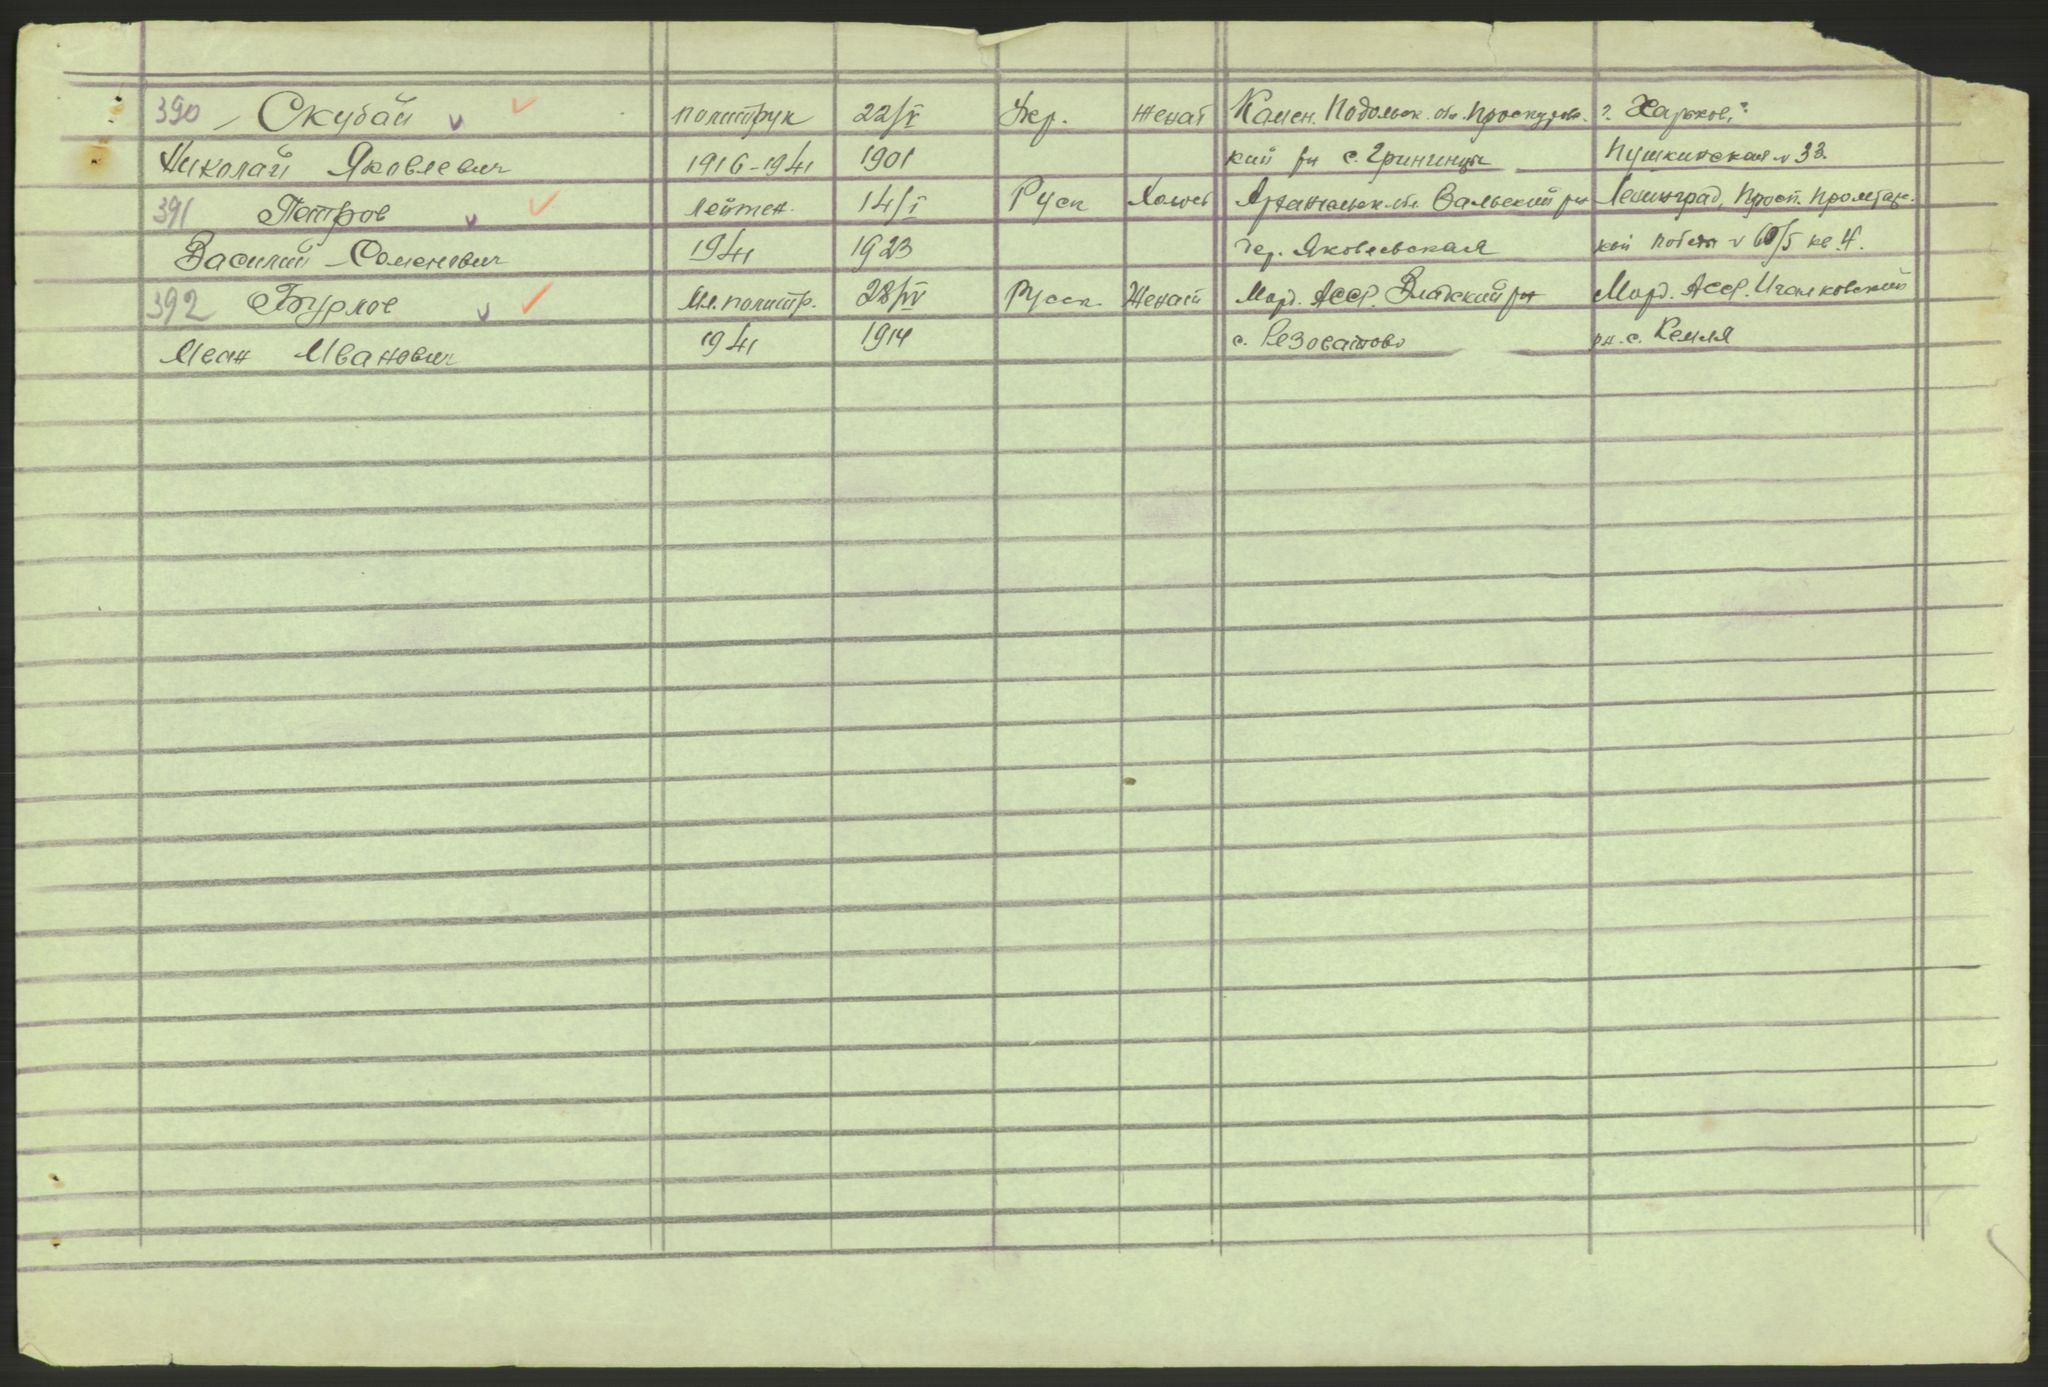 390 Скубай политрук 22/V Укр. женат Камен. Подольск. обл. Проскуров- г. Харьков,
Николай Яковлевич 1916-1941 1901 кий рн с. Гринчинцы Пушкинская № 33.
391 Петров Лейтен. 14/I Руск Холост Архангельск. обл. Вальский рн Ленинград, Просп. Пролетар.
Василий Семенович 1941 1923 дер. Яковлевская кой победы № 60/5 кв 4.
392 Бурлов Мл. политр. 28/IV Русск. Женат Морд. АССР. рн Морд. АССР. Ичалковский
Иван Иванович 1941 1914 с. рн. с. Кемля